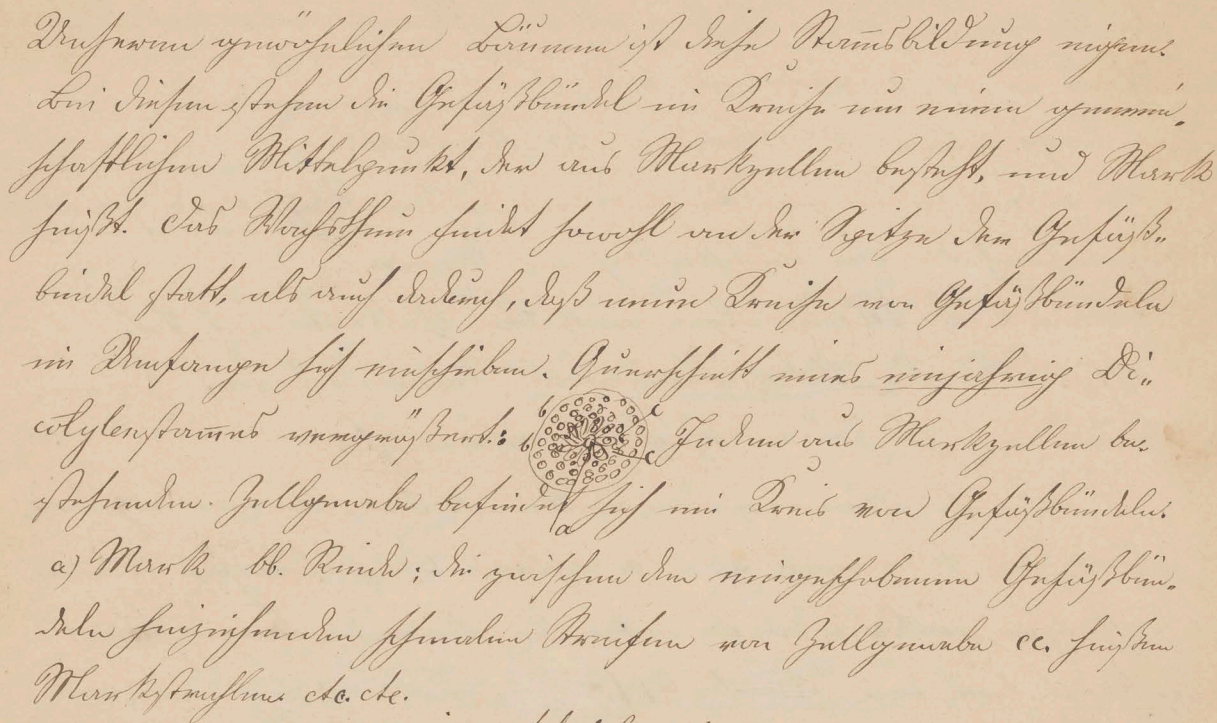 Unseren gewöhnlichen Bäumen ist diese Stammbildung eigen.
Bei diesen stehen die Gefäßbündel im Kreise um einen gemein-
schaftlichen Mittelpunkt, der aus Markzellen besteht, und Mark
heißt. Das Wachsthum findet sowohl an der Spitze der Gefäß-
bündel statt, als auch dadurch, daß neue Kreise von Gefäßbündeln
im Umfange sich einschieben. Querschnitt eines einjährig Di-
cotylenstammes vergrößert: b b c c In dem aus Markzellen be-
stehenden Zellgewebe befindet sich ein Kreis von Gefäßbündeln.
a
a) Mark bb. Rinde; die zwischen den eingeschobenen Gefäßbün-
deln hinziehenden schmalen Streifen von Zellgewebe cc. heißen
Markstrahlen etc. etc.